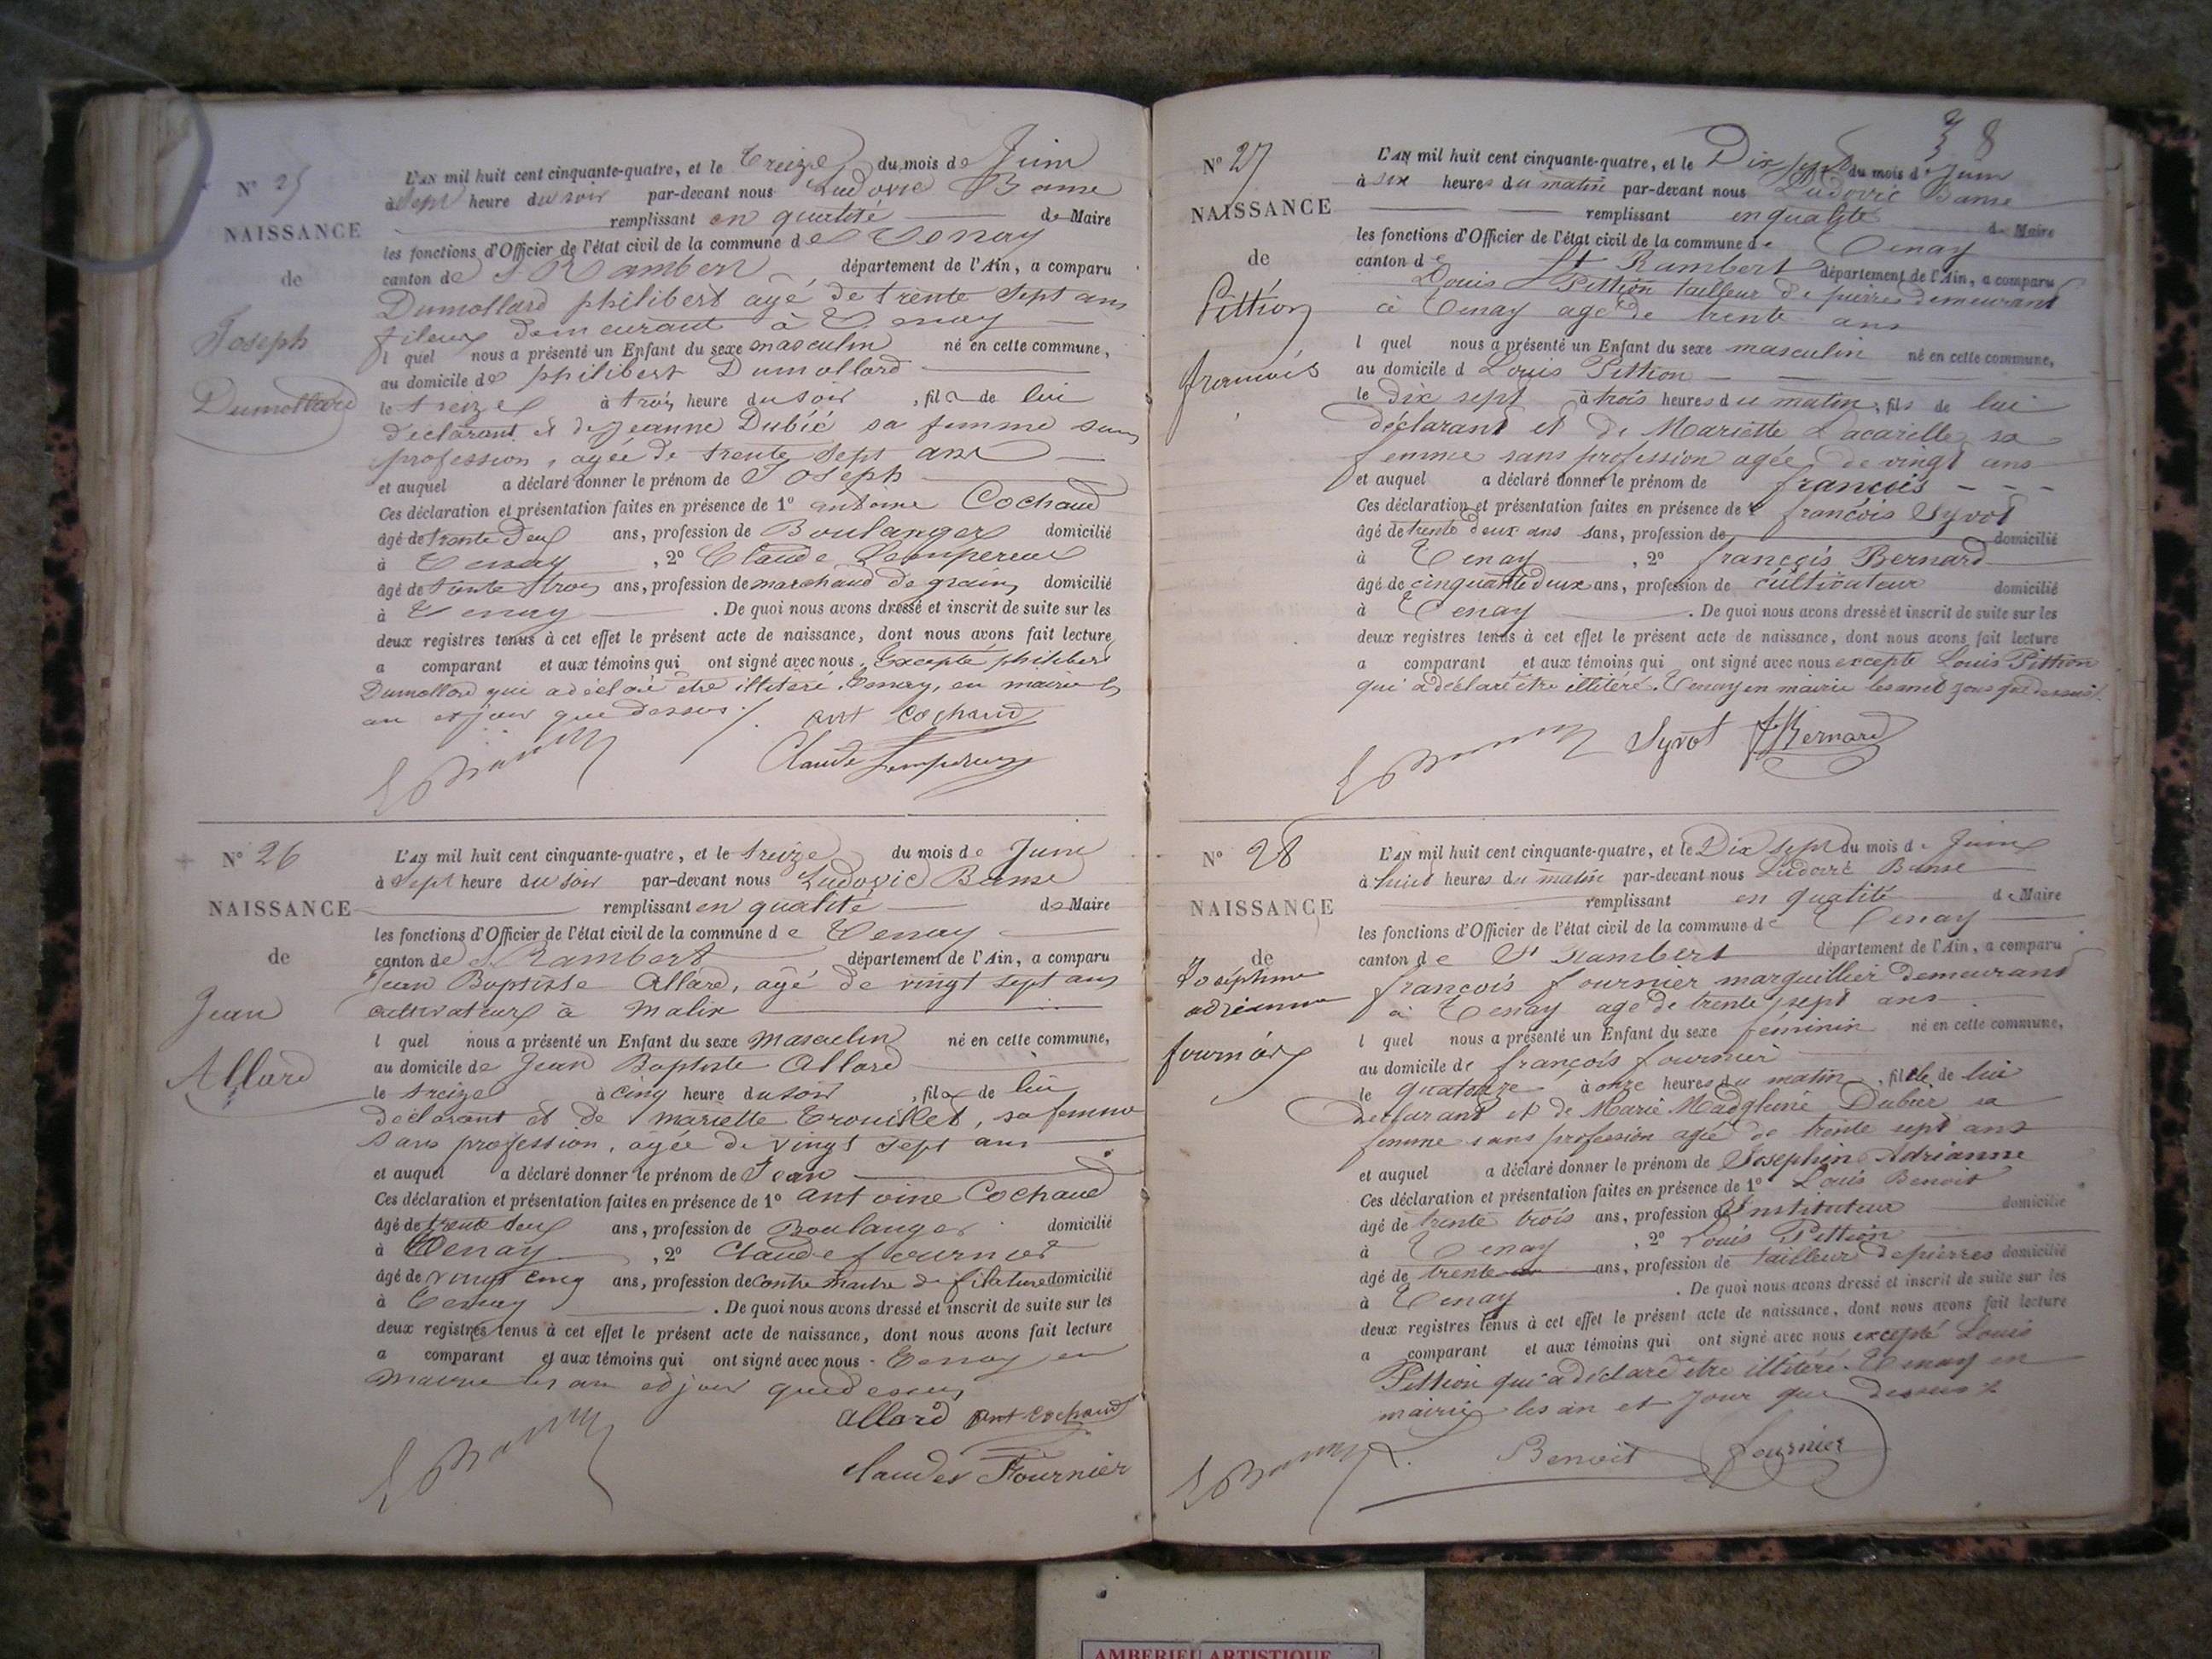 N° 25
NAISSANCE
de
Joseph
Dumollard
L'AN mil huit cent cinquante-quatre, et le treize du mois de Juin
à Sept heure du soir par-devant nous Ludovic
remplissant en qualité de Maire
les fonctions d'Officier de l'état civil de la commune de Tenay
canton de St Rambert département de l'Ain, a comparu
Dumollard philibert agé de trente sept ans
fileur demeurant à Tenay
l quel nous a présenté un Enfant du sexe masculin né en cette commune,
au domicile de philibert Dumollard
le treize à trois heure du soir, fils de lui
déclarant et de Jeanne Dubié sa femme sans
profession, agée de trente sept ans
et auquel a déclaré donner le prénom de Joseph
Ces déclaration et présentation faites en présence de 1° antoine Cochaud
âgé de trente deux ans, profession de Boulanger domicilié
à Tenay, 2° Claude Lempereur
âgé de trente trois ans, profession de marchand de grains domicilié
à Tenay. De quoi nous avons dressé et inscrit de suite sur les
deux registres tenus à cet effet le présent acte de naissance, dont nous avons fait lecture
a comparant et aux témoins qui ont signé avec nous. Excepté philibert
Dumollard qui a déclaré être illitéré. Tenay, en mairie les
an et jour que dessus /.
ant Cochaud
Claude Lempereur
N° 26
NAISSANCE
de
Jean
Allard
L'AN mil huit cent cinquante-quatre, et le treize du mois de Juin
à Sept heure du soir par-devant nous Ludovic
remplissant en qualité de Maire
les fonctions d'Officier de l'état civil de la commune de Tenay
canton de St Rambert département de l'Ain, a comparu
Jean Baptiste Allard, agé de vingt sept ans
cultivateur à Malix
l quel nous a présenté un Enfant du sexe Masculin né en cette commune,
au domicile de Jean Baptiste Allard
le treize à cinq heure du soir, fils de lui
déclarant et de mariette Trouillet, sa femme
sans profession, agée de vingt sept ans
et auquel a déclaré donner le prénom de Jean
Ces déclaration et présentation faites en présence de 1° antoine Cochaud
âgé de trente deux ans, profession de Boulanger domicilié
à Tenay, 2° Claude fournier
âgé de vingt cinq ans, profession de Contre maitre de filature domicilié
à Tenay. De quoi nous avons dressé et inscrit de suite sur les
deux registres tenus à cet effet le présent acte de naissance, dont nous avons fait lecture
a comparant et aux témoins qui ont signé avec nous. Tenay, en
mairie les an et jour que dessus
allard ant cochaud
claude Fournier
38
N° 27
NAISSANCE
de
Pittion
françois
L'AN mil huit cent cinquante-quatre, et le Dix sept du mois de Juin
à six heures du matin par-devant nous Ludovic
remplissant en qualité de Maire
les fonctions d'Officier de l'état civil de la commune de Tenay
canton de St Rambert département de l'Ain, a comparu
Louis Pittion tailleur de pierres demeurant
à Tenay agé de trente ans
l quel nous a présenté un Enfant du sexe masculin né en cette commune,
au domicile d Louis Pittion
le dix sept à trois heures du matin, fils de lui
déclarant et de Mariette Lacarelle sa
femme sans profession agée de vingt ans
et auquel a déclaré donner le prénom de françois
Ces déclaration et présentation faites en présence de 1° françois Syvot
âgé de trente deux ans sans, profession de domicilié
à Tenay, 2° françois Bernard
âgé de cinquante deux ans, profession de cultivateur domicilié
à Tenay. De quoi nous avons dressé et inscrit de suite sur les
deux registres tenus à cet effet le présent acte de naissance, dont nous avons fait lecture
a comparant et aux témoins qui ont signé avec nous excepté Louis Pittion
qui a déclaré être illitéré. Tenay en mairie les an et jour que dessus /.
Syvot Bernard
N° 28
NAISSANCE
de
Joséphine
adrienne
fournier
L'AN mil huit cent cinquante-quatre, et le Dix Sept du mois de Juin
à huit heures du matin par-devant nous Ludovic
remplissant en qualité de Maire
les fonctions d'Officier de l'état civil de la commune de Tenay
canton de St Rambert département de l'Ain, a comparu
françois fournier marguillier demeurant
à Tenay agé de trente sept ans
l quel nous a présenté un Enfant du sexe féminin né en cette commune,
au domicile de françois fournier
le quatorze à onze heures du matin, fille de lui
declarant et de Marie Madgleine Dubier sa
femme sans profession agée de trente sept ans
et auquel a déclaré donner le prénom de Josephine Adrianne
Ces déclaration et présentation faites en présence de 1° Louis Benoit
âgé de trente trois ans, profession d'Instituteur domicilié
à Tenay, 2° Louis Pittion
âgé de trente ans, profession de tailleur de pierres domicilié
à Tenay. De quoi nous avons dressé et inscrit de suite sur les
deux registres tenus à cet effet le présent acte de naissance, dont nous avons fait lecture
a comparant et aux témoins qui ont signé avec nous excepté Louis
Pittion qui a déclaré être illitéré. Tenay en
mairie les an et jour que dessus
Benoit fournier
AMBERIEU ARTISTIQUE